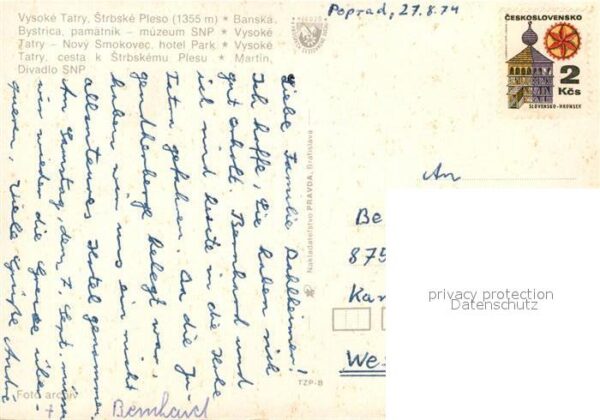 Vysoké Tatry, Štrbské Pleso (1355 m) * Banská
Bystrica, pamätník – múzeum SNP * Vysoké
Tatry – Nový Smokovec, hotel Park * Vysoké
Tatry, cesta k Štrbskému Plesu * Martin,
Divadlo SNP
Poprad, 27.8.74
ČESKOSLOVENSKO
2
Kčs
SLOVENSKO-HRONSEK
Liebe Familie Dahlheimer!
Ich hoffe, Sie haben sich
gut erholt. Bernhard und
ich sind heute in die Hohe
Tatra gefahren. Da die Ju-
gendherberge belegt war,
haben wir uns ein nicht
allzu teures Hotel genommen.
Am Samstag, dem 7. Sept. müssen
wir wieder die Grenze über-
queren. Viele Grüße André
+ Bernhard
Foto archív
Nakladateľstvo PRAVDA, Bratislava
TZP-B
An
Be
875
Kar
We
privacy protection
Datenschutz